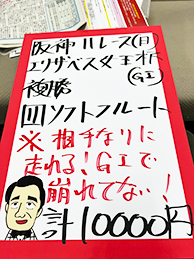 阪神11レース(日)
エリザベス女王杯
(GⅠ)
複勝
11 ソフトフルート
※相手なりに
走れる!GⅠで
崩れてない!
計10000円